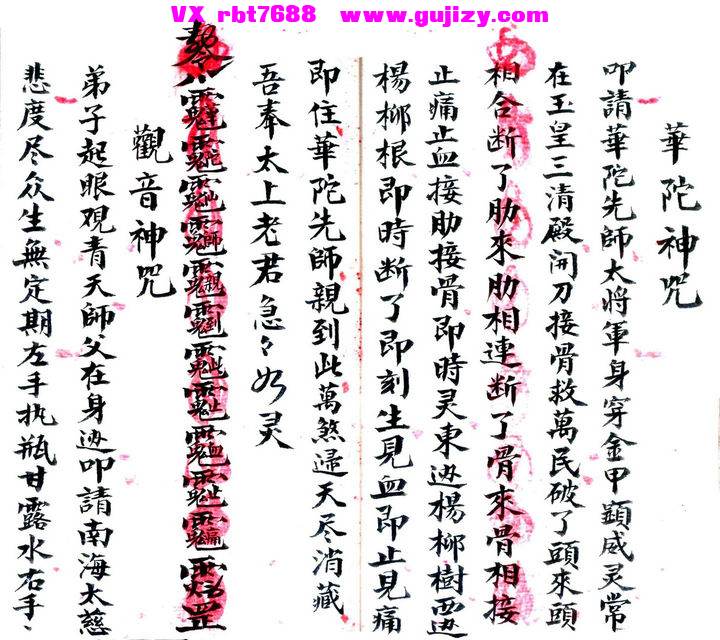 VX rbt7688 www.gujizy.com
華陀神咒
叩請華陀先師太將軍身穿金甲顕威灵常
在玉皇三清殿開刀接骨救萬民破了頭來頭
相合断了肋來肋相連断了骨來骨相接
止痛止血接肋接骨即時灵東边楊柳樹西边
楊柳根即時断了即刻生見血即止見痛
即住華陀先師親到此萬煞遠天尽消藏
吾奉太上老君急々如灵
觀音神咒
弟子起眼观青天師父在身边叩請南海大慈
悲度尽众生無定期左手执瓶甘露水右手、